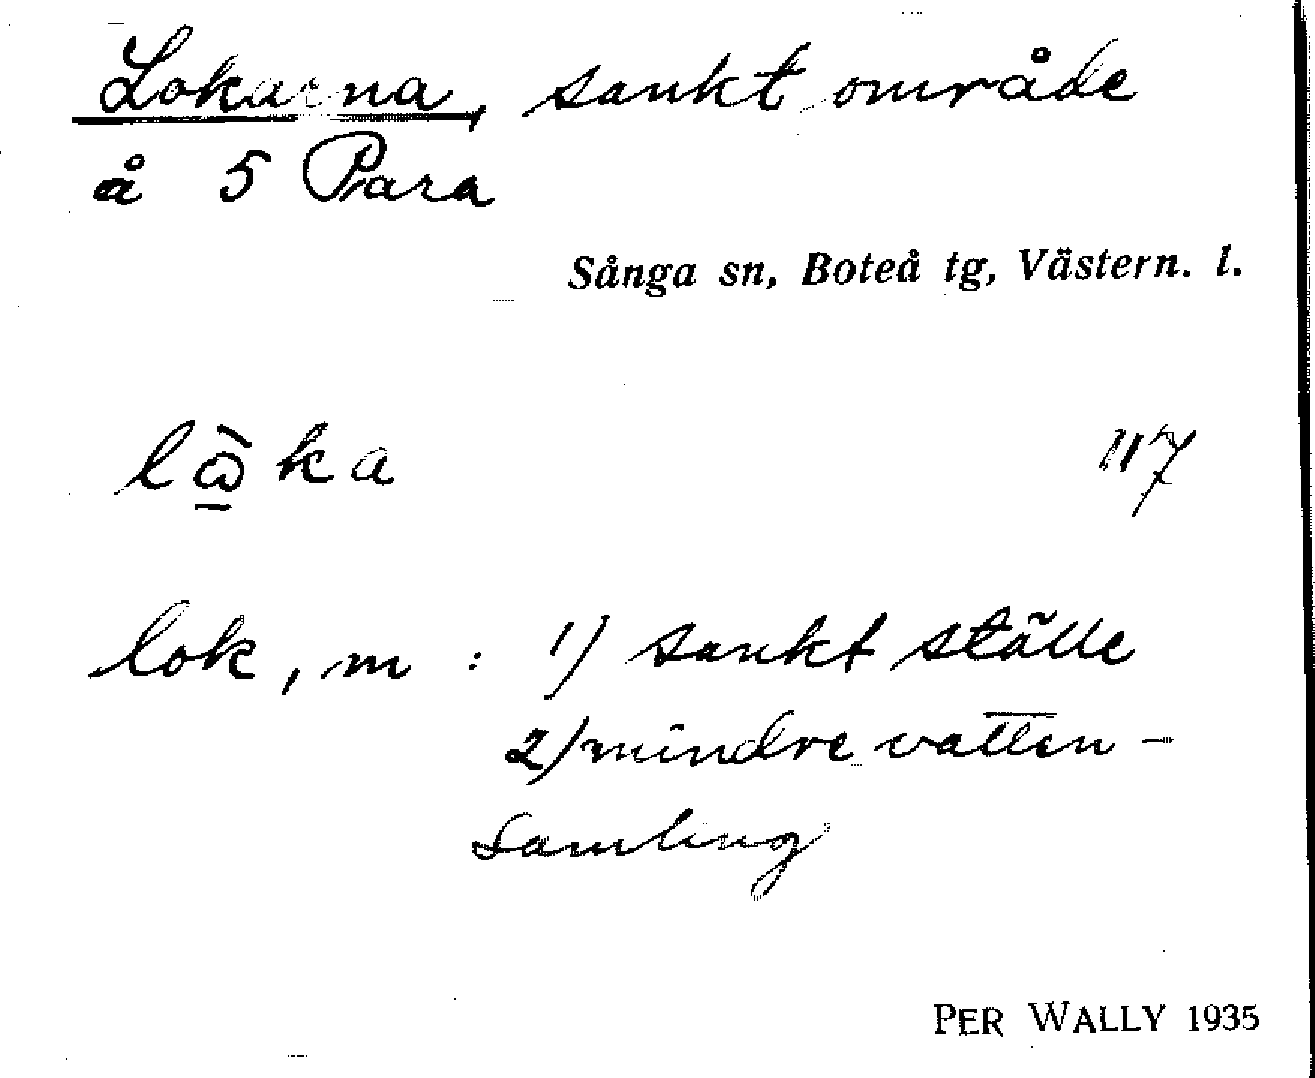 Lokarna, sankt område
å 5 Para
Sånga sn, Boteå tg, Västern. l.
lὼ̲ka 117
lok, m : 1) sankt ställe
2) mindre vatten-
samling
PER WALLY 1935